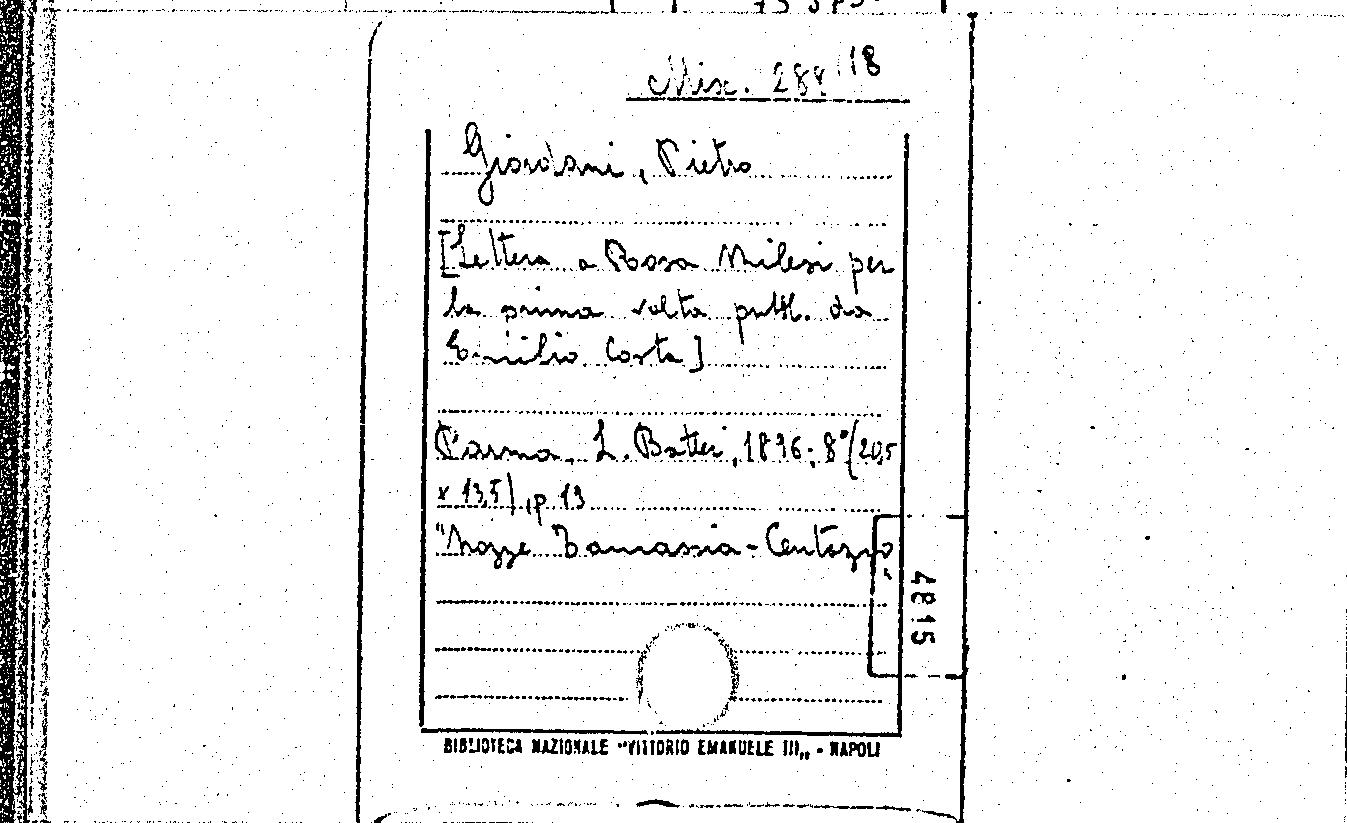 Misc. 284 18
Giordani, Pietro
[Lettera a Rosa Milesi per
la prima volta pubbl. da
Emilio Costa]
Parma, L. Battei, 1896; 8° (20,5
x 13,5), p. 13
"Nozze Tamassia-Centazzo"
4815
BIBLIOTECA NAZIONALE "VITTORIO EMANUELE III„ - NAPOLI